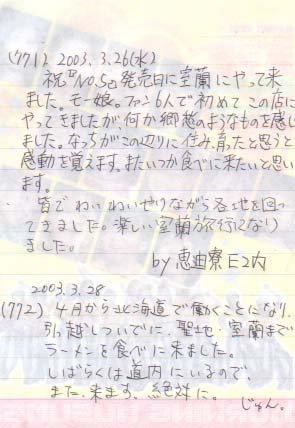 (771) 2003.3.26(水)
祝『No.5』発売日に室蘭にやって来
ました。モー娘。ファン6人で初めてこの店に
やってきましたが、何か郷愁のようなものを感じ
ました。なっちがこの辺りに住み、育ったと思うと
感動を覚えます。またいつか食べに来たいと思い
ます。
皆でわいわいせりながら各地を回っ
てきました。楽しい室蘭旅行になり
ました。
by 恵迪寮E2内
2003.3.28
(772) 4月から北海道で働くことになり、
引越しついでに、聖地・室蘭まで
ラーメンを食べに来ました。
しばらくは道内にいるので、
また、来ます、絶対に。
じゅん。